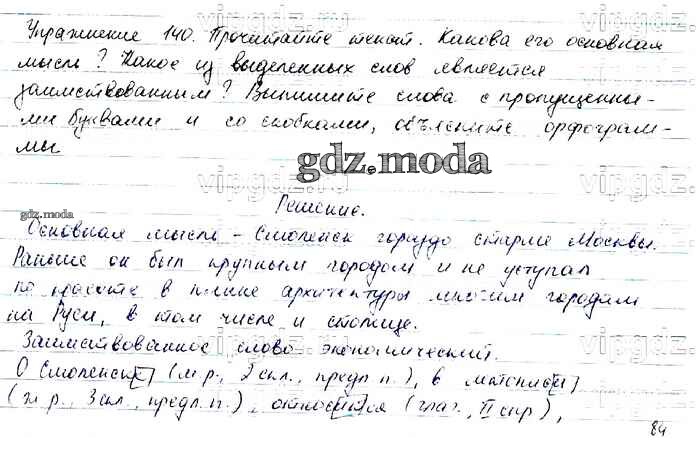 Упражнение 140. Прочитайте текст. Какова его основная
мысль? Какое из выделенных слов является
заимствованным? Выпишите слова с пропущенны-
ми буквами и со скобками, объясните орфограм-
мы
gdz.moda
Решение.
gdz.moda
Основная мысль – Смоленск гораздо старше Москвы.
Раньше он был крупным городом и не уступал
по красоте в плане архитектуры многим городам
на Руси, в том числе и столице.
Заимствованное слово экономический.
О Смоленск[е] (м.р., 2 скл., предл. п.), в летопис[и]
(ж.р., 3 скл., предл. п.), относ[ит]ся (глаг., II спр),
84